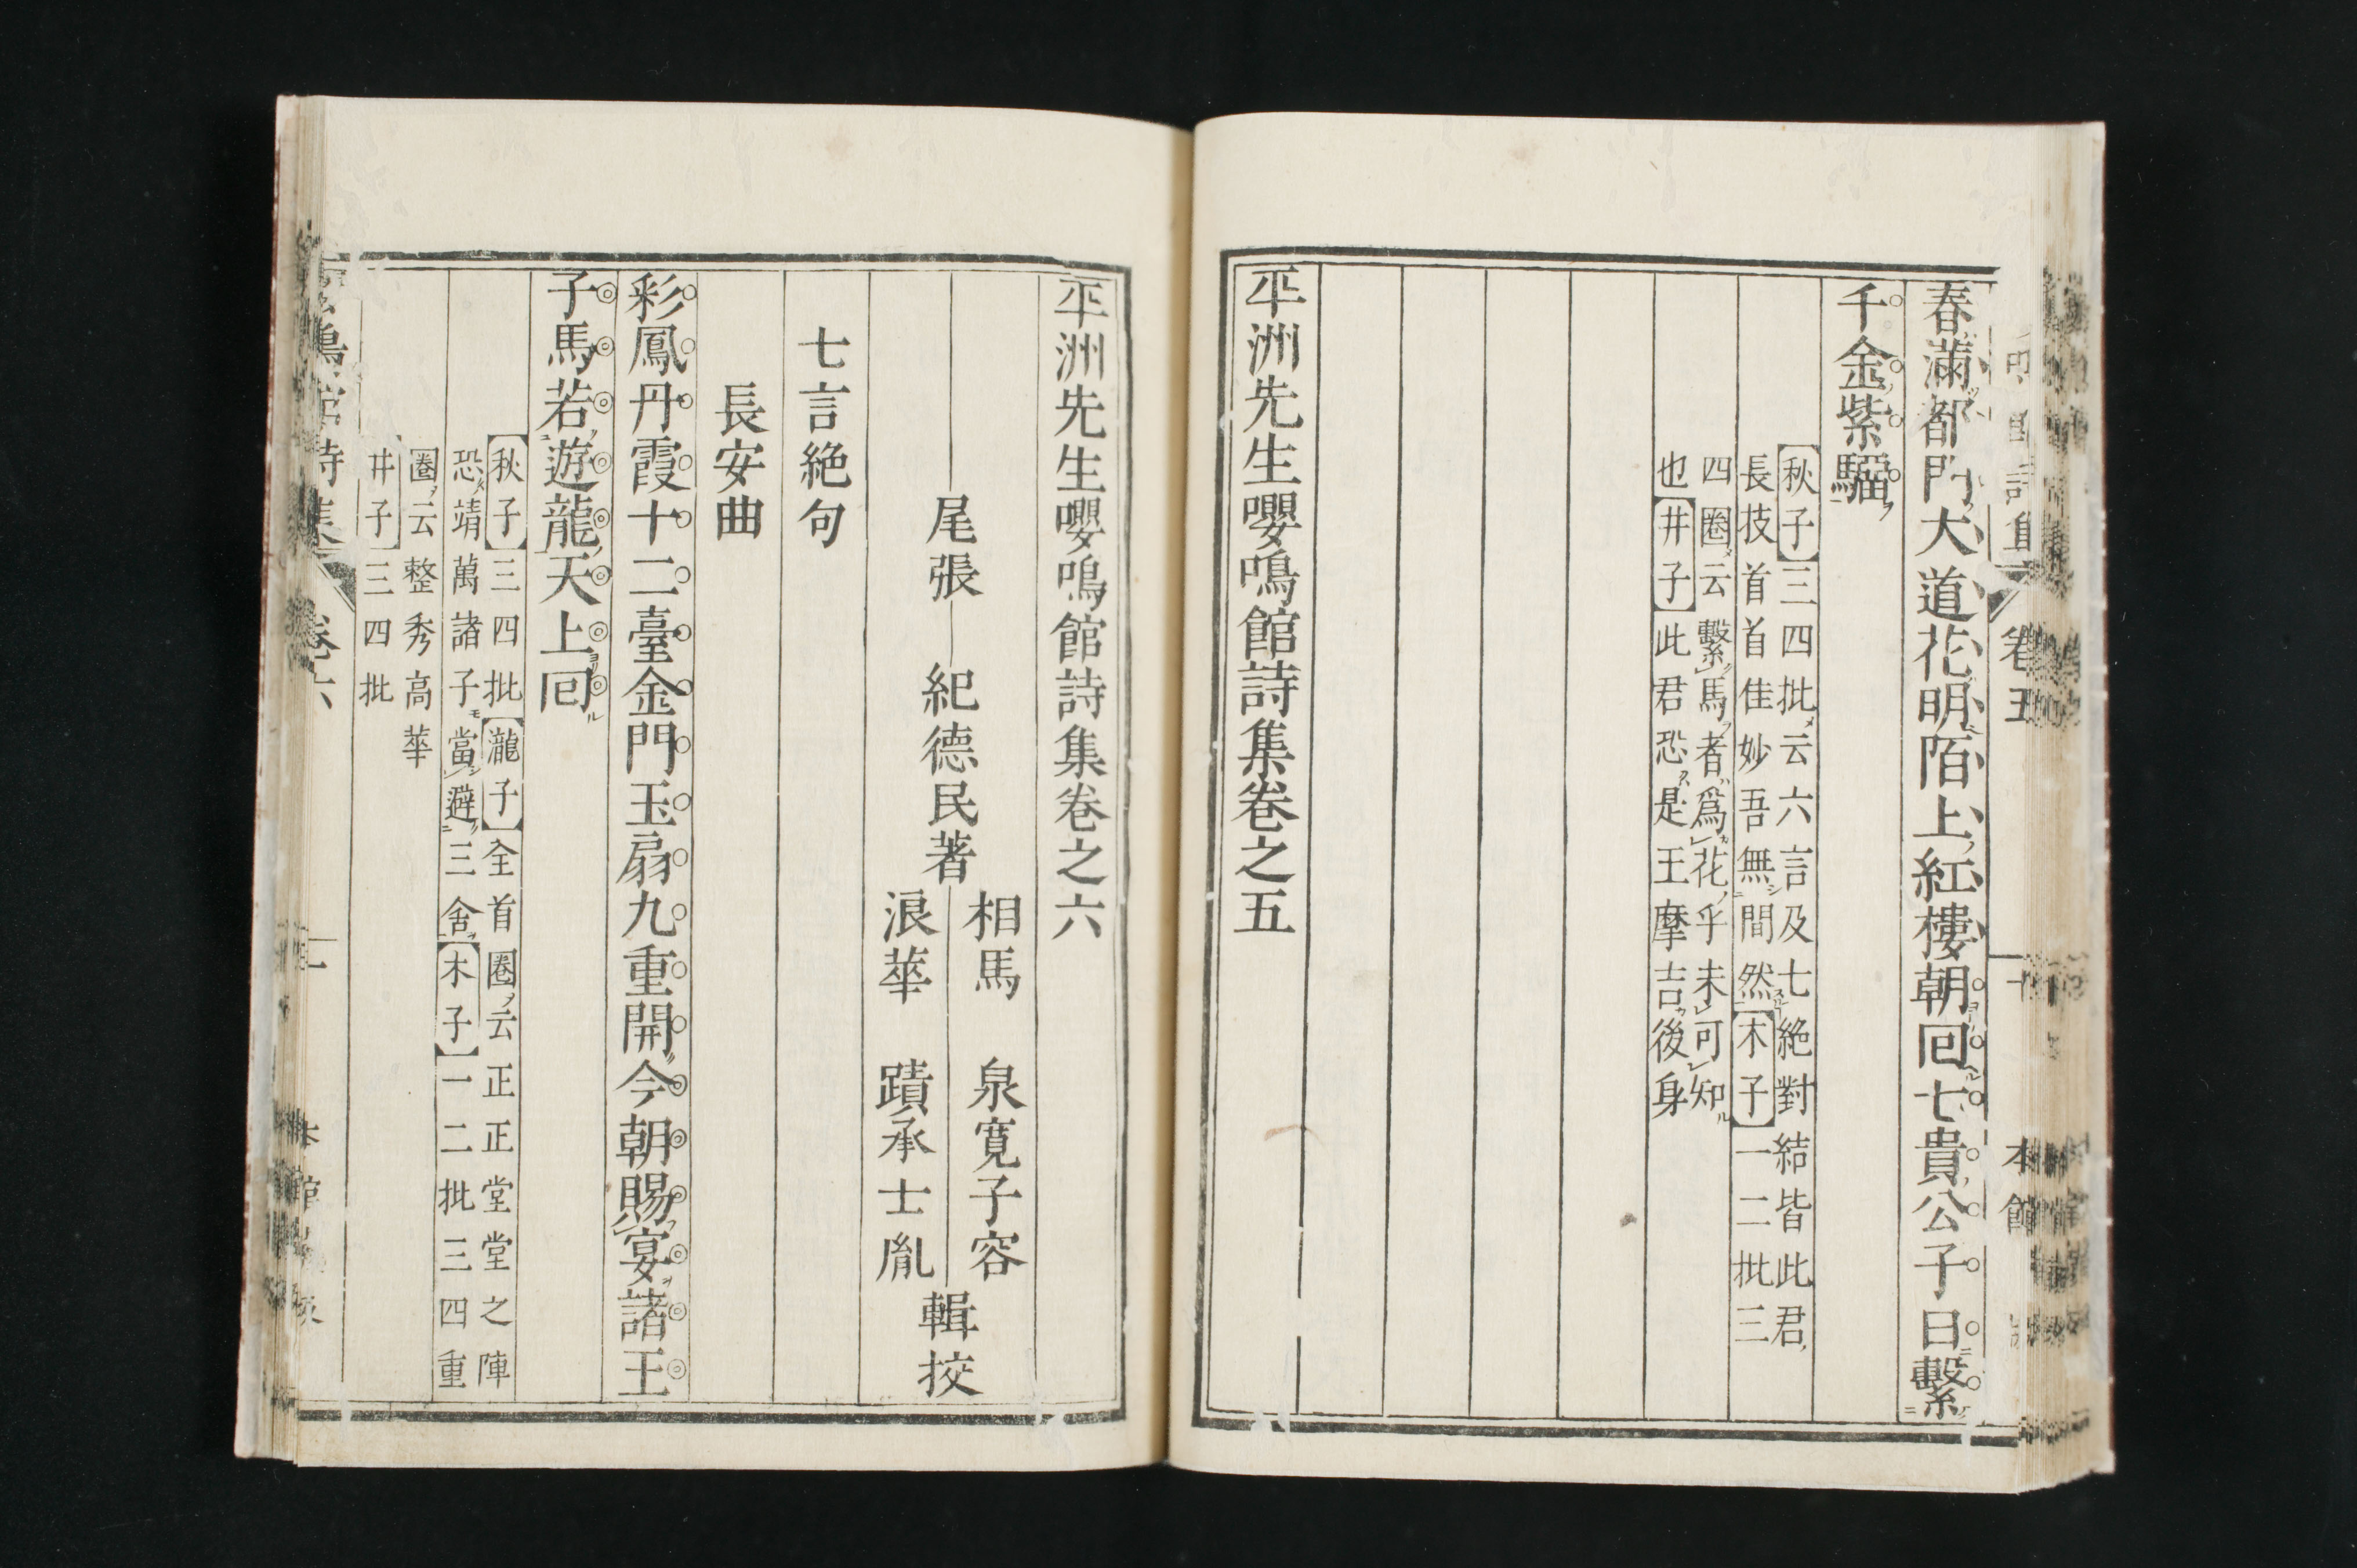 春滿都門大道花明陌上紅樓朝囘七貴公子日繫
千金紫騮
【秋子】三四批云六言及七絶對結皆此君
長技首首佳妙吾無間然【木子】一二批三
四圈云繫馬者爲花乎未可知
也【井子】此君恐是王摩吉後身
平洲先生嚶鳴館詩集卷之五
卷五
本館
平洲先生嚶鳴館詩集卷之六
尾張 紀德民著
相馬 泉寛子容
浪華 蹟承士胤
輯挍
七言絶句
長安曲
彩鳳丹霞十二臺金門玉扇九重開今朝賜宴諸王
子馬若遊龍天上囘
【秋子】三四批【瀧子】全首圈云正正堂堂之陣
恐靖萬諸子當避三舍【木子】一二批三四重
圈云整秀高華
【井子】三四批